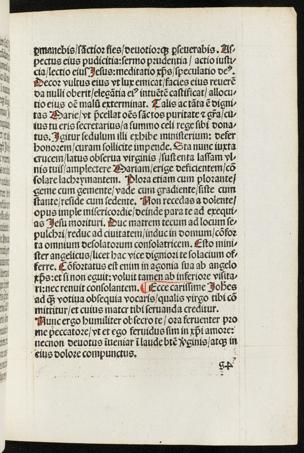 ꝑmanebis/sãctior fies/deuotiorqꝫ pseuerabis. As
pectus eius pudicitia: sermo prudentia/actio iusti
cia/lectio eius Jesus: meditatio xp̃s/speculatio deꝰ.
Decor vultus eius vt lux emicat/facies eius reuerẽ
da nulli oberit/elegãtia eiꝰ intuẽtẽ castificat/allocu
tio eius oẽ malũ exterminat. Talis ac tãta ẽ digni
tas Marie/vt p̃cellat oẽs sãctos puritate ⁊ gr̃a/cu
ius tu eris secretarius/a summo celi rege sibi dona
tus. Igitur sedulum illi exhibe ministerium: defer
honorem/curam sollicite impende. Sta nunc iuxta
crucem/latus obserua virginis/sustenta lassam vl
nis tuis/amplectere Mariam/erige deficientem/cõ
solare lachrymantem. Plora etiam cum plorante/
geme cum gemente/vade cum gradiente/siste cum
stante/reside cum sedente. Non recedas a dolente/
opus imple misericordie/deinde para te ad exequi
as Jesu morituri. Duc matrem tecum ad locum se
pulchri/reduc ad ciuitatem/induc in domum/cõfor
ta omnium desolatorum consolatricem. Esto mini
ster angelicus/licet hac vice digniori te solacium of
ferre. Cõfortatus est enim in agonia sua ab angelo
xp̃s: et si non eguit: voluit tamen ab inferiore visita
ri: nec renuit consolantem. Ecce carissime Johẽs
ad qđ votiua obsequia vocaris/qualis virgo tibi cõ
mittitur/et cuius mater tibi seruanda creditur.
Nunc ergo humiliter obsecro te/ora feruenter pro
me peccatore/vt et ego feruidus sim in xp̃i amore:
necnon deuotus inueniar ĩ laude btẽ Vginis/atqꝫ in
eius dolore compunctus.